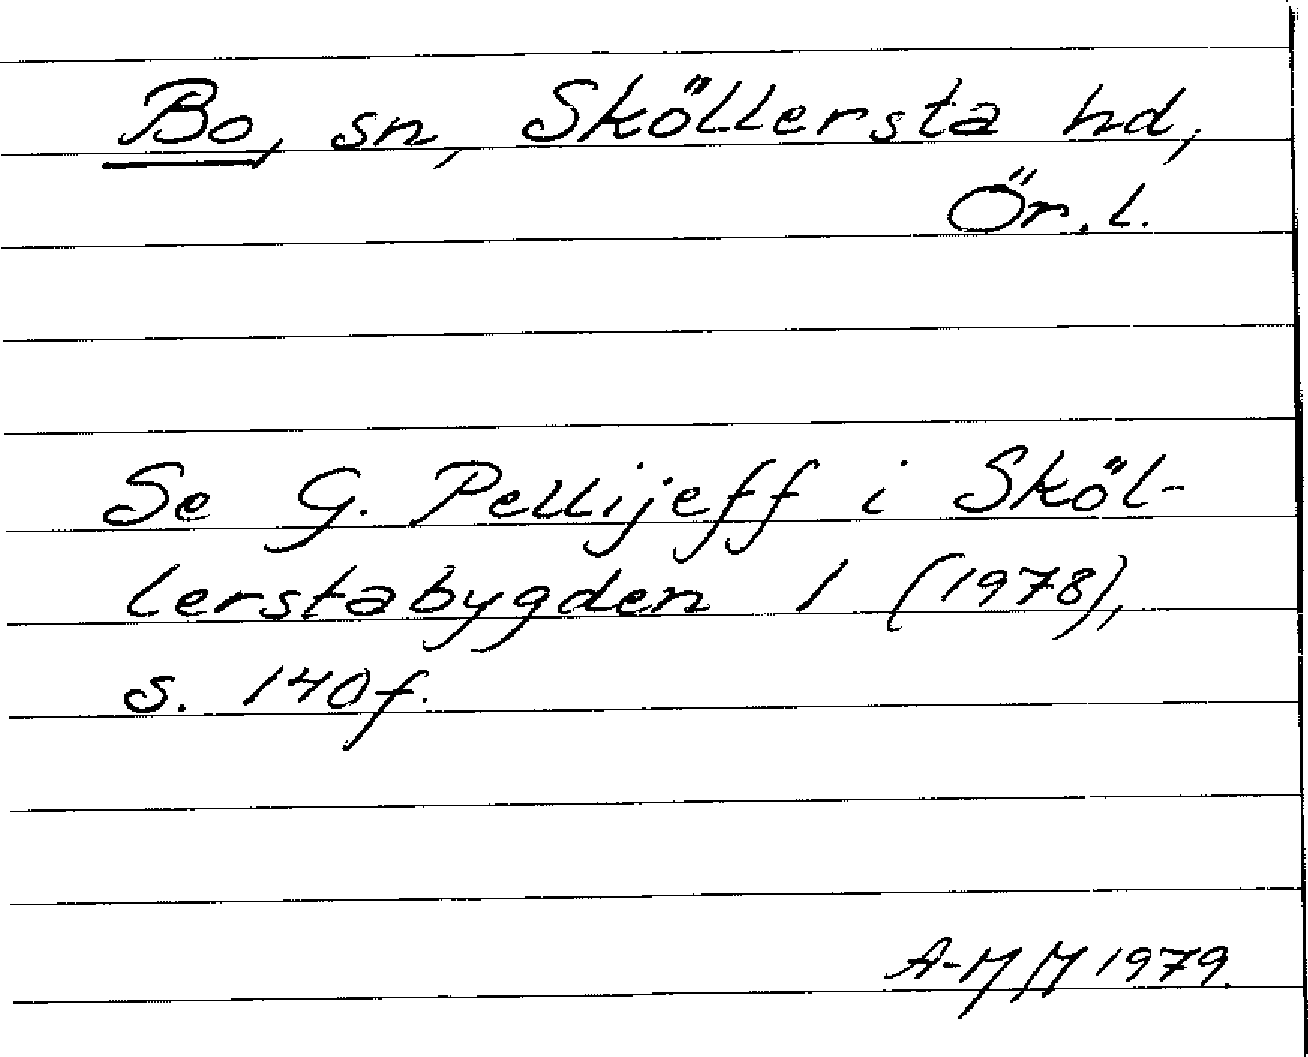 Bo, sn, Sköllersta hd,
Ör. l.
Se G. Pellijeff i Sköl-
lerstabygden 1 (1978),
s. 140f.
A-MM 1979.